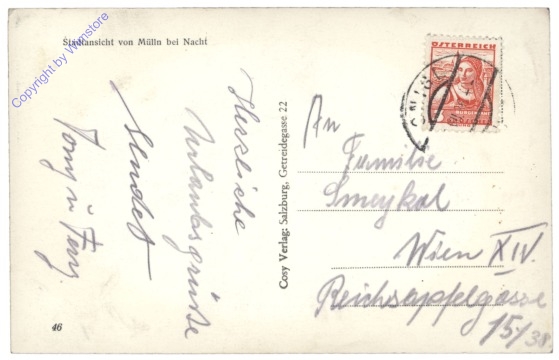 Stadtansicht von Mülln bei Nacht
Copyright by Wnrstore
Herzliche
Urlaubsgrüße
sendet
Tony u Ferry
46
Cosy Verlag: Salzburg, Getreidegasse 22
ÖSTERREICH
An
Familie
Smeykal
Wien XIV.
Reichsapfelgasse
15/38